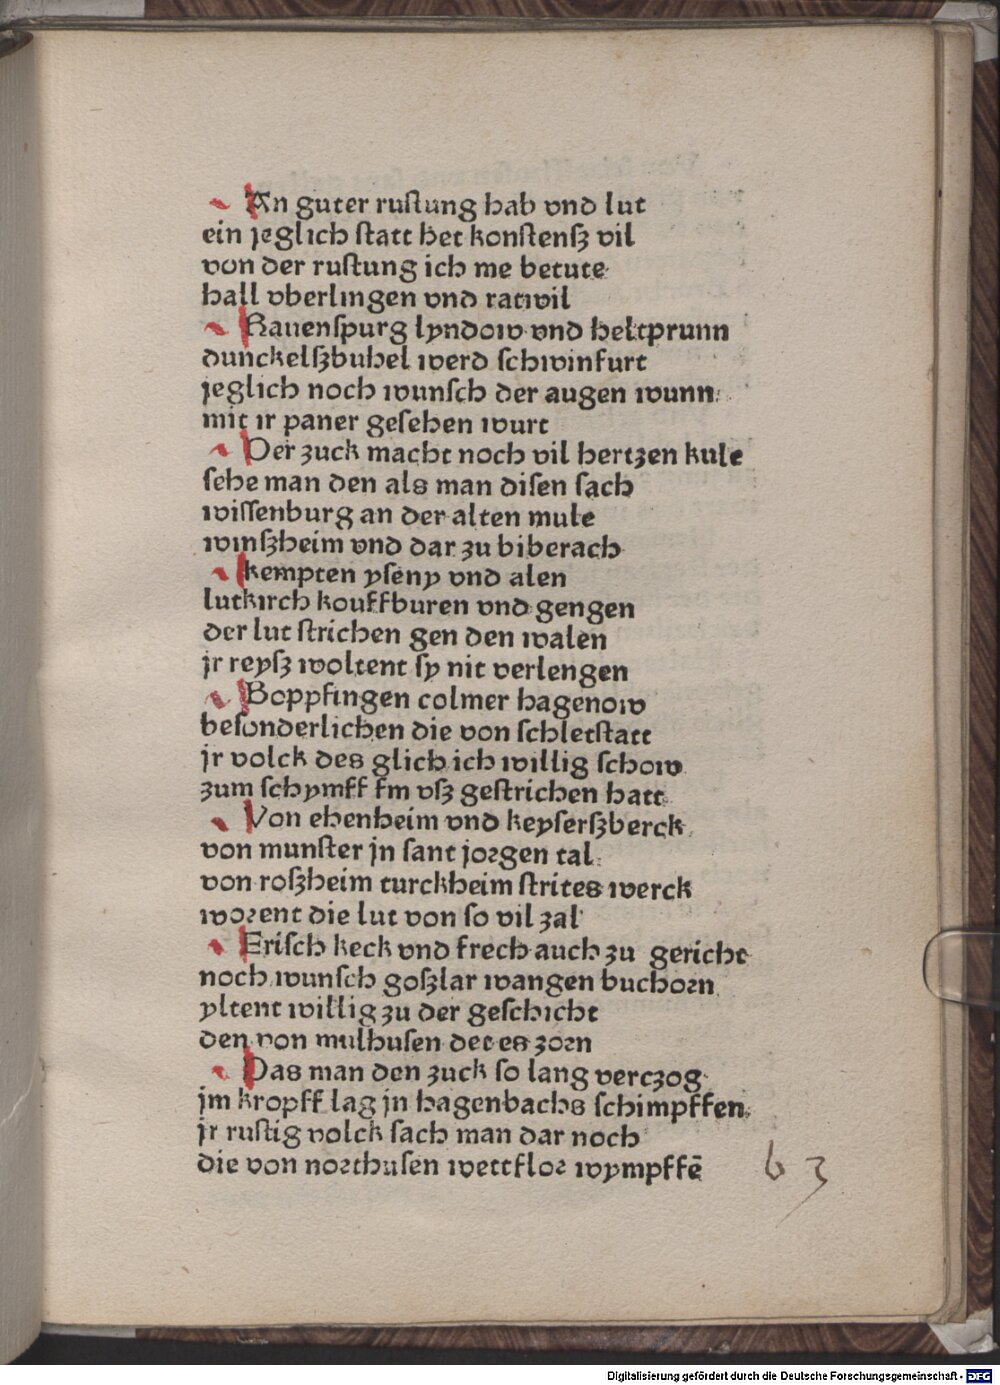 An guter ruſtung hab vnd lut
ein jeglich ſtatt het konſtenſz vil
von der ruſtung ich me betute
hall vberlingen vnd ratwil
Rauenſpurg lyndow vnd heltprunn
dunckelſzbuhel werd ſchwinfurt
jeglich noch wunſch der augen wunn
mit ir paner geſehen wurt
Der zuck macht noch vil hertzen kule
ſehe man den als man diſen ſach
wiſſenburg an der alten mule
winſzheim vnd dar zu biberach
kempten yſeny vnd alen
lutkirch kouffburen vnd gengen
der lut ſtrichen gen den walen
jr reyſz woltent ſy nit verlengen
Boppfingen colmer hagenow
beſonderlichen die von ſchletſtatt
jr volck des glich ich willig ſchow
zum ſchymff ſm vſz geſtrichen hatt
Von ehenheim vnd keyſerſzberck
von munſter jn ſant jorgen tal
von roſzheim turckheim ſtrites werck
worent die lut von ſo vil zal
Friſch keck vnd frech auch zu gericht
noch wunſch goſzlar wangen buchorn
yltent willig zu der geſchicht
den von mulhuſen det es zorn
Das man den zuck ſo lang verczog
jm kropff lag jn hagenbachs ſchimpffen
jr ruſtig volck ſach man dar noch
die von northuſen wettflor wympffē
63
Digitalisierung gefördert durch die Deutsche Forschungsgemeinschaft - DFG